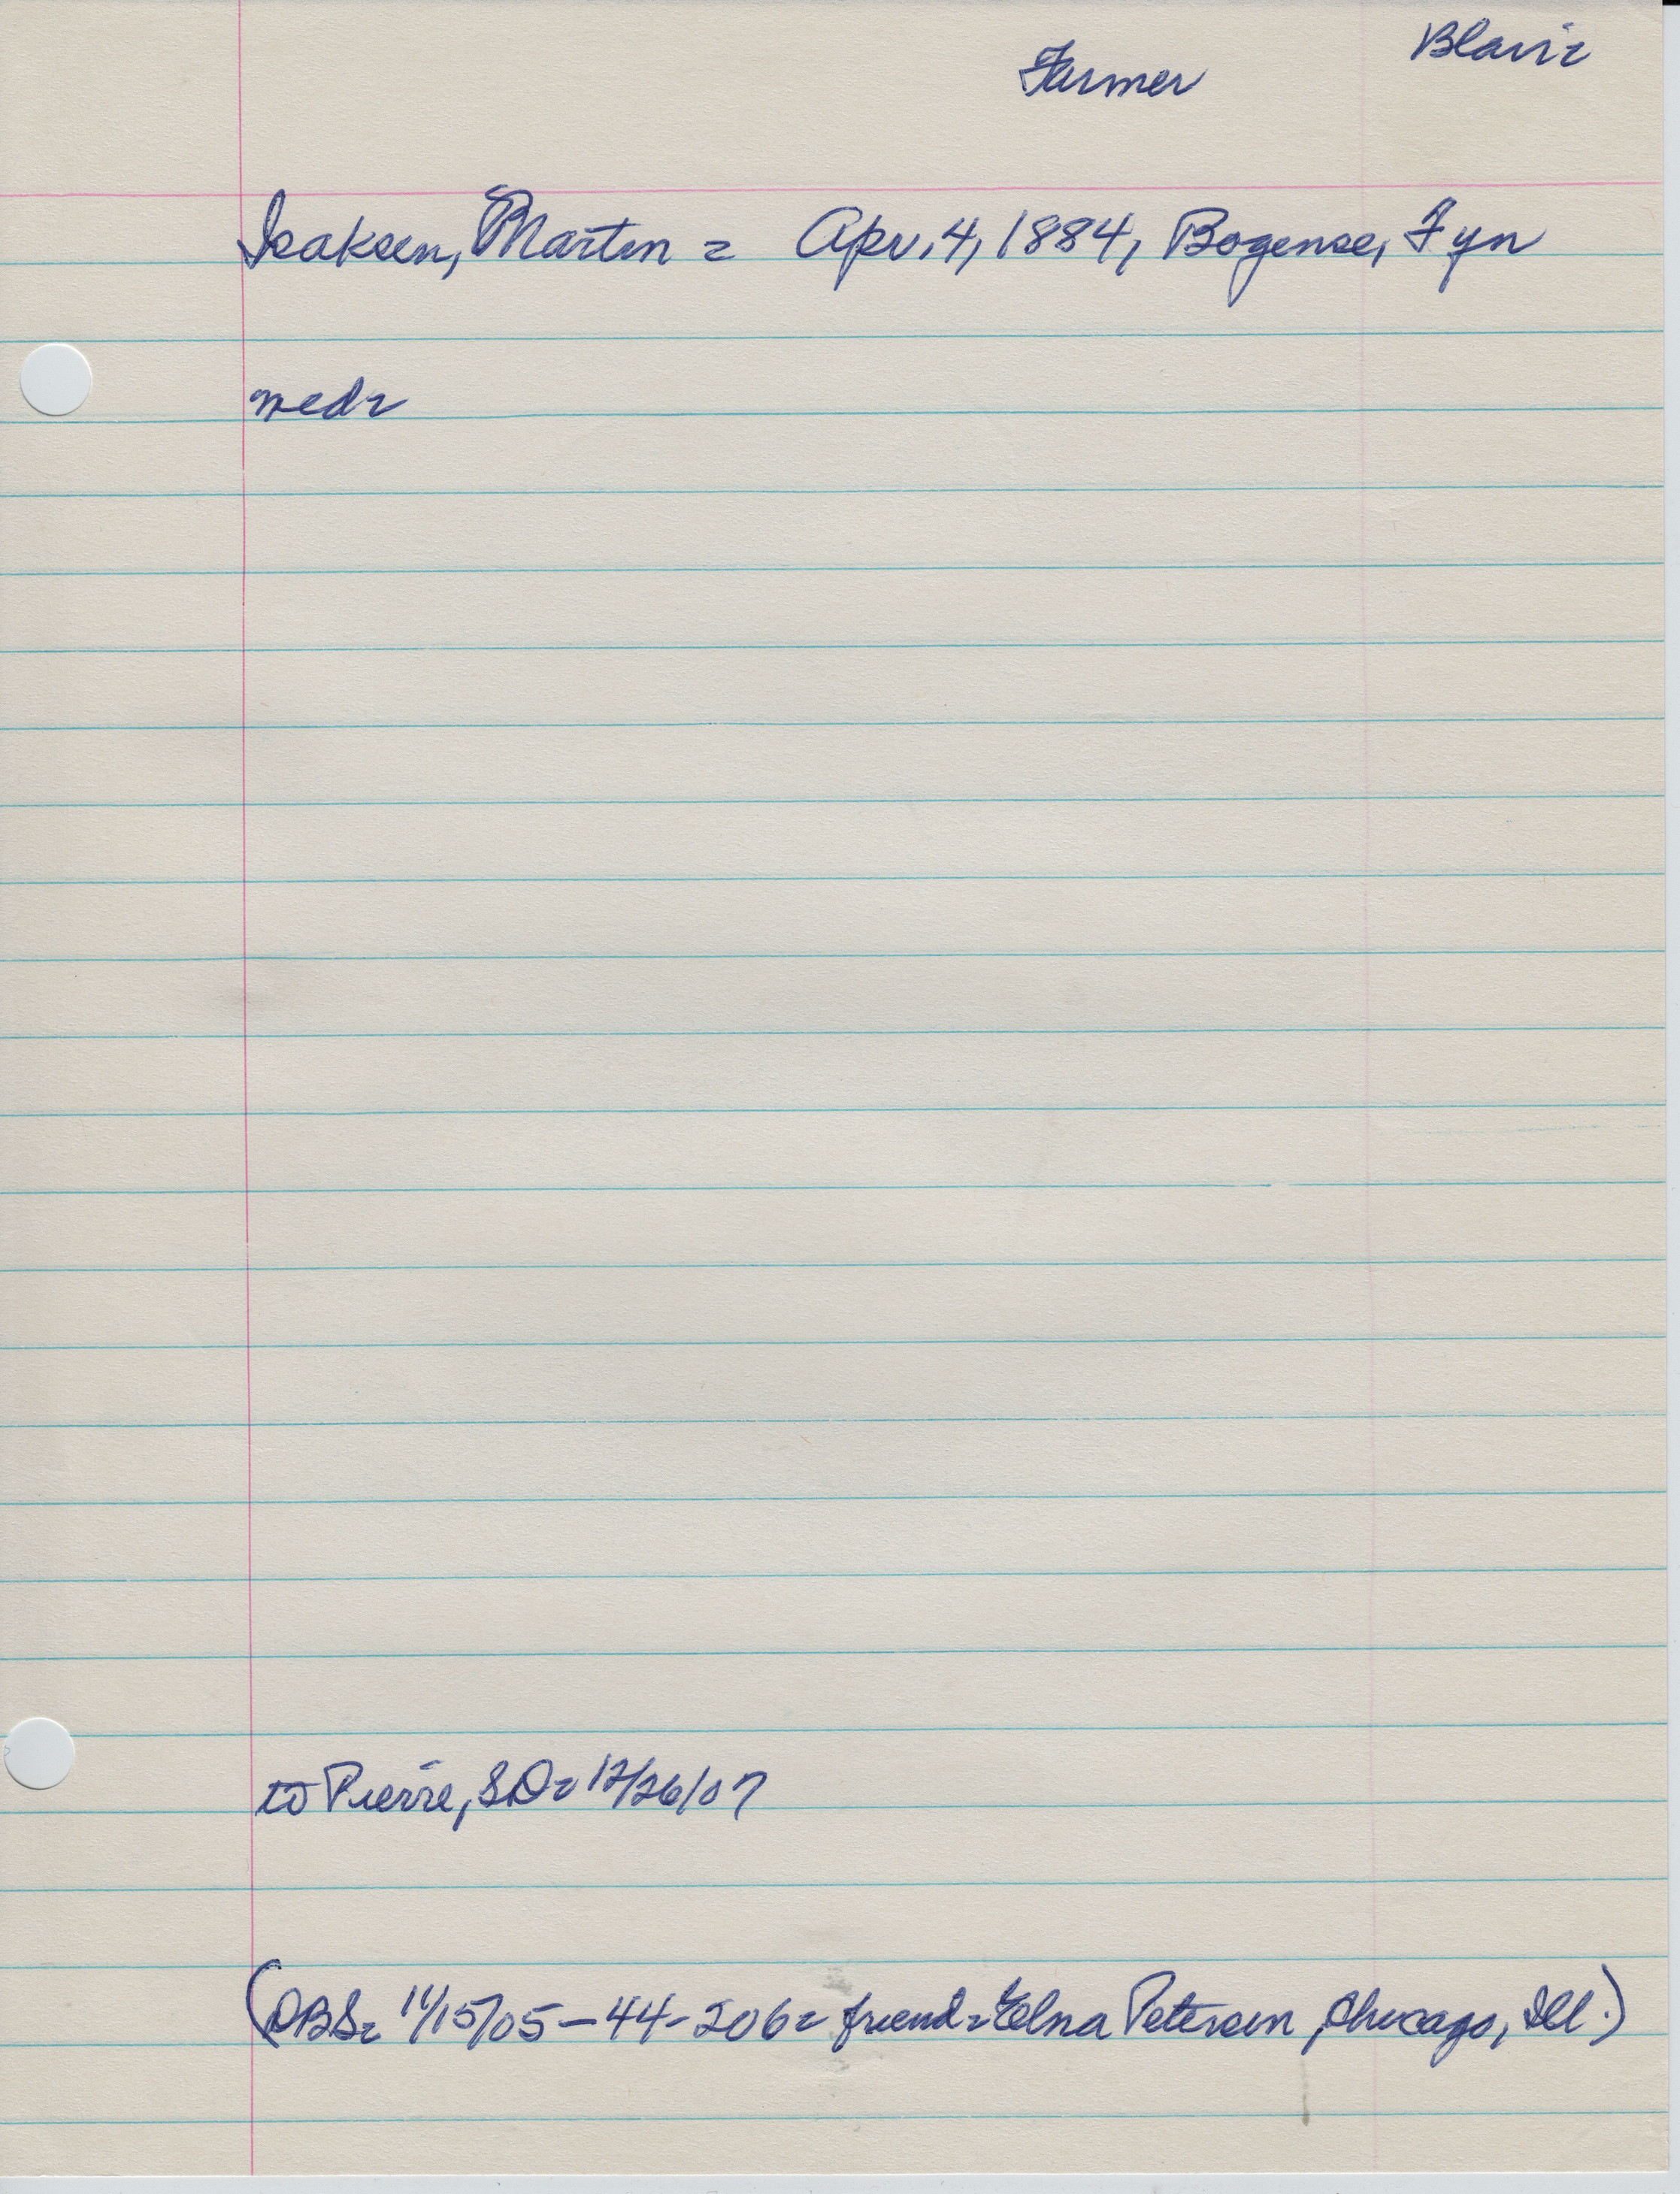 Blair=
Farmer
Isaksen, Martin = Apr. 4, 1884, Bogense, Fyn
ned=
to Pierre, SD= 12/26/07
(DBS= 11/15/05-44-206= friend= Elna Petersen, Chicago, Ill.)